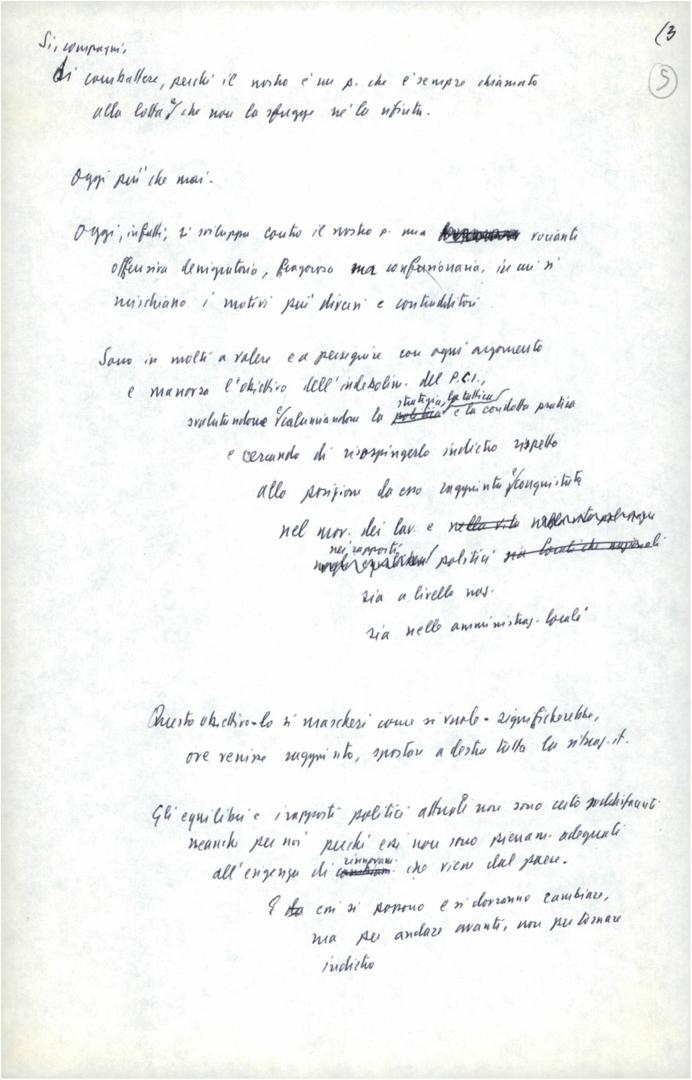 (3
5
Si, compagni,
Di combattere, perché il nostro è un p. che è sempre chiamato
alla lotta e che non la sfugge né la rifiuta.
Oggi piu' che mai.
Oggi, infatti, si sviluppa contro il nostro p. una variante
offensiva denigratoria, fragorosa ma confusionaria, in cui si
mischiano i motivi piu' diversi e contradditori
Sono in molti a volere e a perseguire con ogni argomento
e manovra l'obiettivo dell'indebolim. del P.C.I.,
strategia, la tattica
svalutandone e calunniandone la politica e la condotta pratica
e cercando di risospingerlo indietro rispetto
alla posizione da esso raggiunta e conquistata
nel mov. dei lav. e nella vita
nei rapporti
politici sia locali che nazionali
sia a livello naz.
sia nelle amministraz. locali
Questo obiettivo - lo si mascheri come si vuole - significherebbe,
ove venisse raggiunto, spostare a destra tutta la situaz. it.
Gli equilibri e i rapporti politici attuali non sono certo soddisfacenti
neanche per noi perché essi non sono pienam. adeguati
rinnovam.
all'esigenza di cambiam. che viene dal paese.
E essi si possono e si dovranno cambiare,
ma per andare avanti, non per tornare
indietro